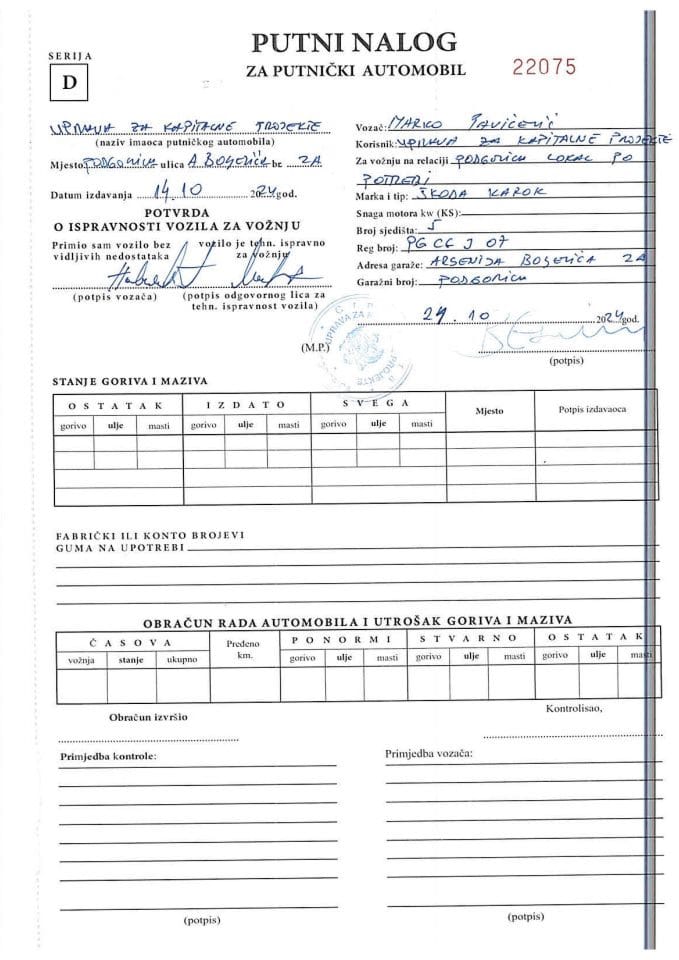 SERIJA
D
PUTNI NALOG
ZA PUTNIČKI AUTOMOBIL
22075
UPRAVA ZA KAPITALNE PROJEKTE
(naziv imaoca putničkog automobila)
Mjesto PODGORICA ulica A. BOJEVIĆA br. 2A
Datum izdavanja 14.10 2024 god.
POTVRDA
O ISPRAVNOSTI VOZILA ZA VOŽNJU
Primio sam vozilo bez vidljivih nedostataka
vozilo je tehn. ispravno za vožnju
(potpis vozača)
(potpis odgovornog lica za tehn. ispravnost vozila)
Vozač: MARKO PAVIĆEVIĆ
Korisnik: UPRAVA ZA KAPITALNE PROJEKTE
Za vožnju na relaciji PODGORICA LOKAL PO
POTREBI
Marka i tip: ŠKODA KAROK
Snaga motora kw (KS):
Broj sjedišta: 5
Reg broj: PG CG J 07
Adresa garaže: ARSENIJA BOJEVIĆA 2A
Garažni broj: PODGORICA
24.10 2024 god.
(M.P.)
(potpis)
STANJE GORIVA I MAZIVA
OSTATAK IZDATO SVEGA Mjesto Potpis izdavaoca
gorivo ulje masti gorivo ulje masti gorivo ulje masti
FABRIČKI ILI KONTO BROJEVI
GUMA NA UPOTREBI
OBRAČUN RADA AUTOMOBILA I UTROŠAK GORIVA I MAZIVA
ČASOVA Pređeno km. PO NORMI STVARNO OSTATAK
vožnja stanje ukupno gorivo ulje masti gorivo ulje masti gorivo ulje masti
Obračun izvršio
Kontrolisao,
Primjedba kontrole:
Primjedba vozača:
(potpis)
(potpis)